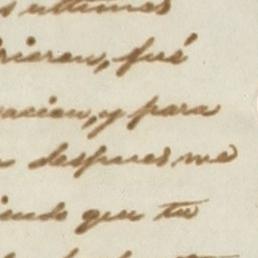 s ultimos
rieran, fué
acion, y para
despues me
iendo que tu